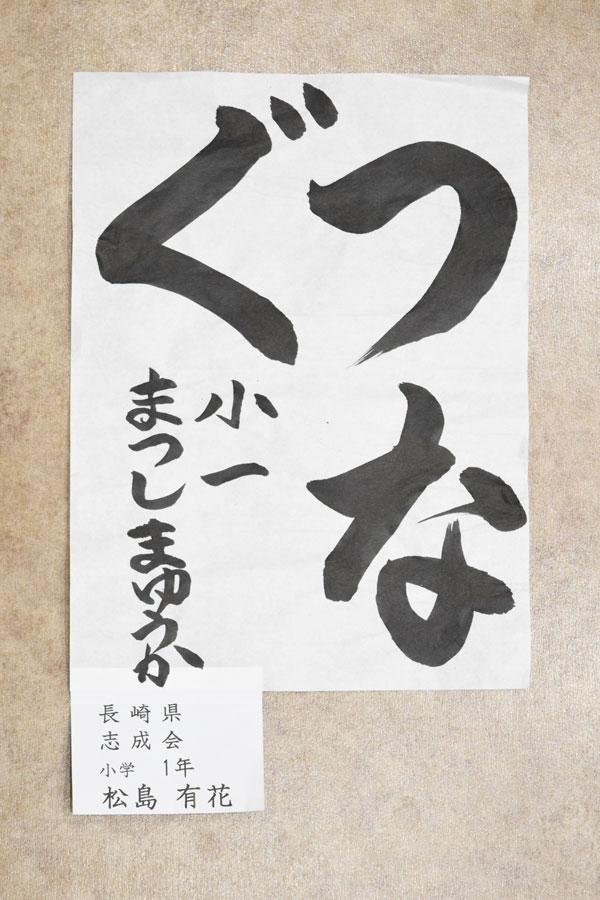 つな
ぐ
小一
まつしまゆうか
長崎県
志成会
小学 1年
松島 有花